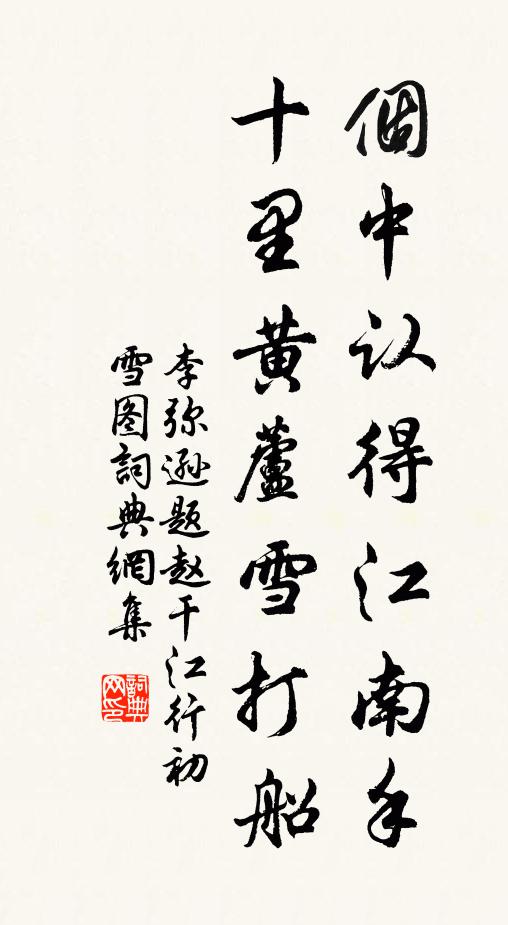 個中认得江南手
十里黄蘆雪打船
李弥遜题赵干江行初
雪图詞典網集
詞典
网印